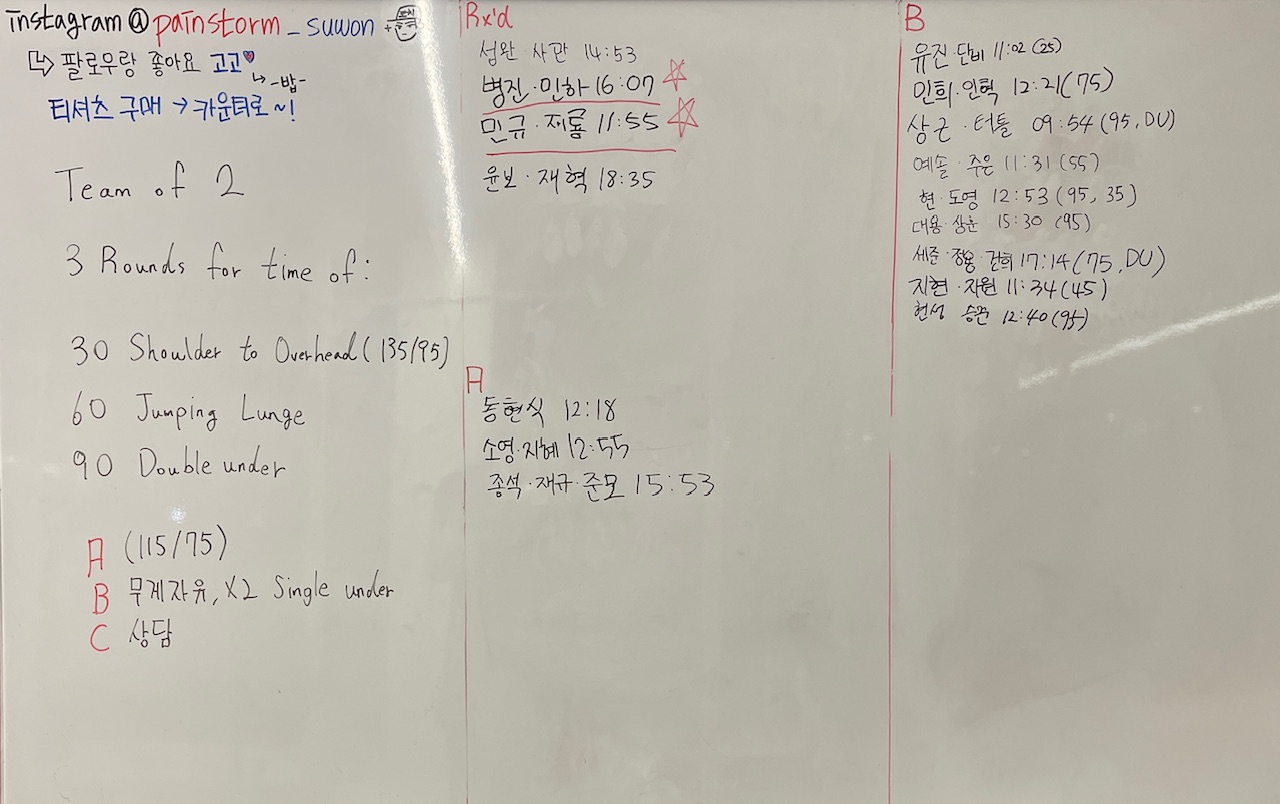 instagram@painstorm_suwon
팔로우랑 좋아요 고고
-밥-
티셔츠 구매 → 카운터로~!
Team of 2
3 Rounds for time of:
30 Shoulder to Overhead (135/95)
60 Jumping Lunge
90 Double under
A (115/75)
B 무게자유, X2 Single under
C 상담
Rx'd
섭완·사관 14:53
병진·민하 16:07
민규·제롬 11:55
윤보·재혁 18:35
A
동현식 12:18
소영·지혜 12:55
종석·재규·준모 15:53
B
유진·단비 11:02 (25)
민희·인혁 12:21(75)
상근·터틀 09:54(95, DU)
예솔·주은 11:31 (55)
현·도영 12:53 (95, 35)
대용·상훈 15:30 (95)
세준·정용·건희 17:14(75, DU)
지현·자원 11:34(45)
현성 승완 12:40(95)